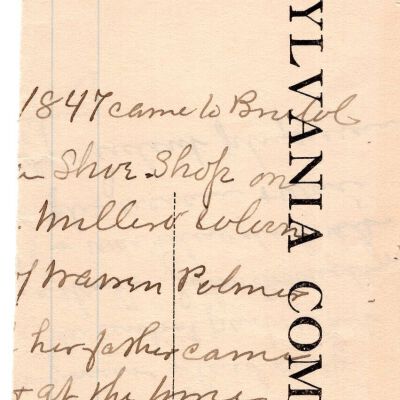 1847 came to Bristol
Shoe Shop on
Miller
of Warren Palmer
her father came
at the time
YLVANIA COM